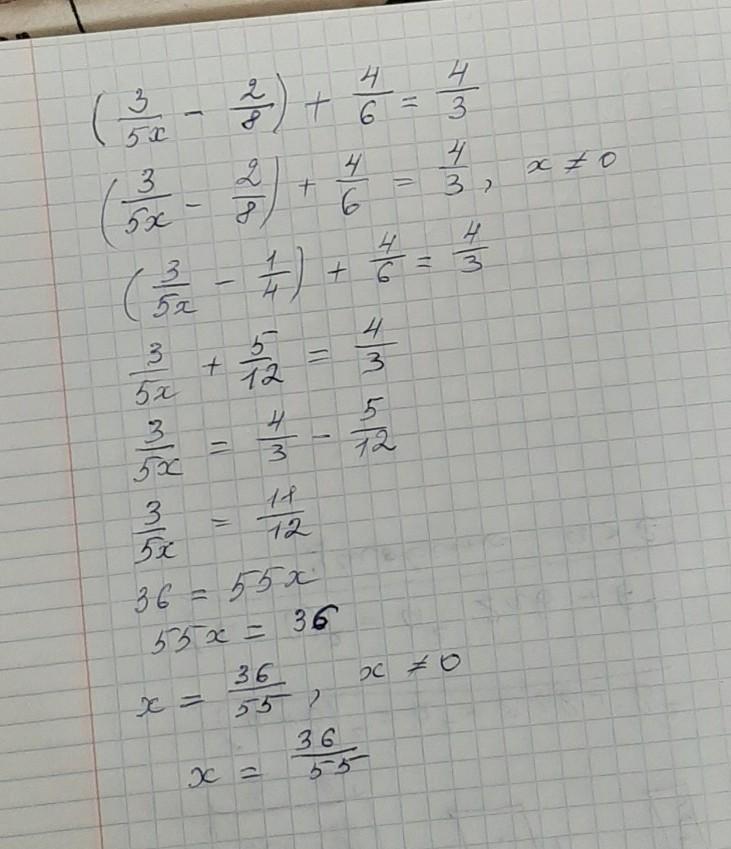 (3/5x - 2/8) + 4/6 = 4/3
(3/5x - 2/8) + 4/6 = 4/3, x ≠ 0
(3/5x - 1/4) + 4/6 = 4/3
3/5x + 5/12 = 4/3
3/5x = 4/3 - 5/12
3/5x = 11/12
36 = 55x
55x = 36
x = 36/55, x ≠ 0
x = 36/55